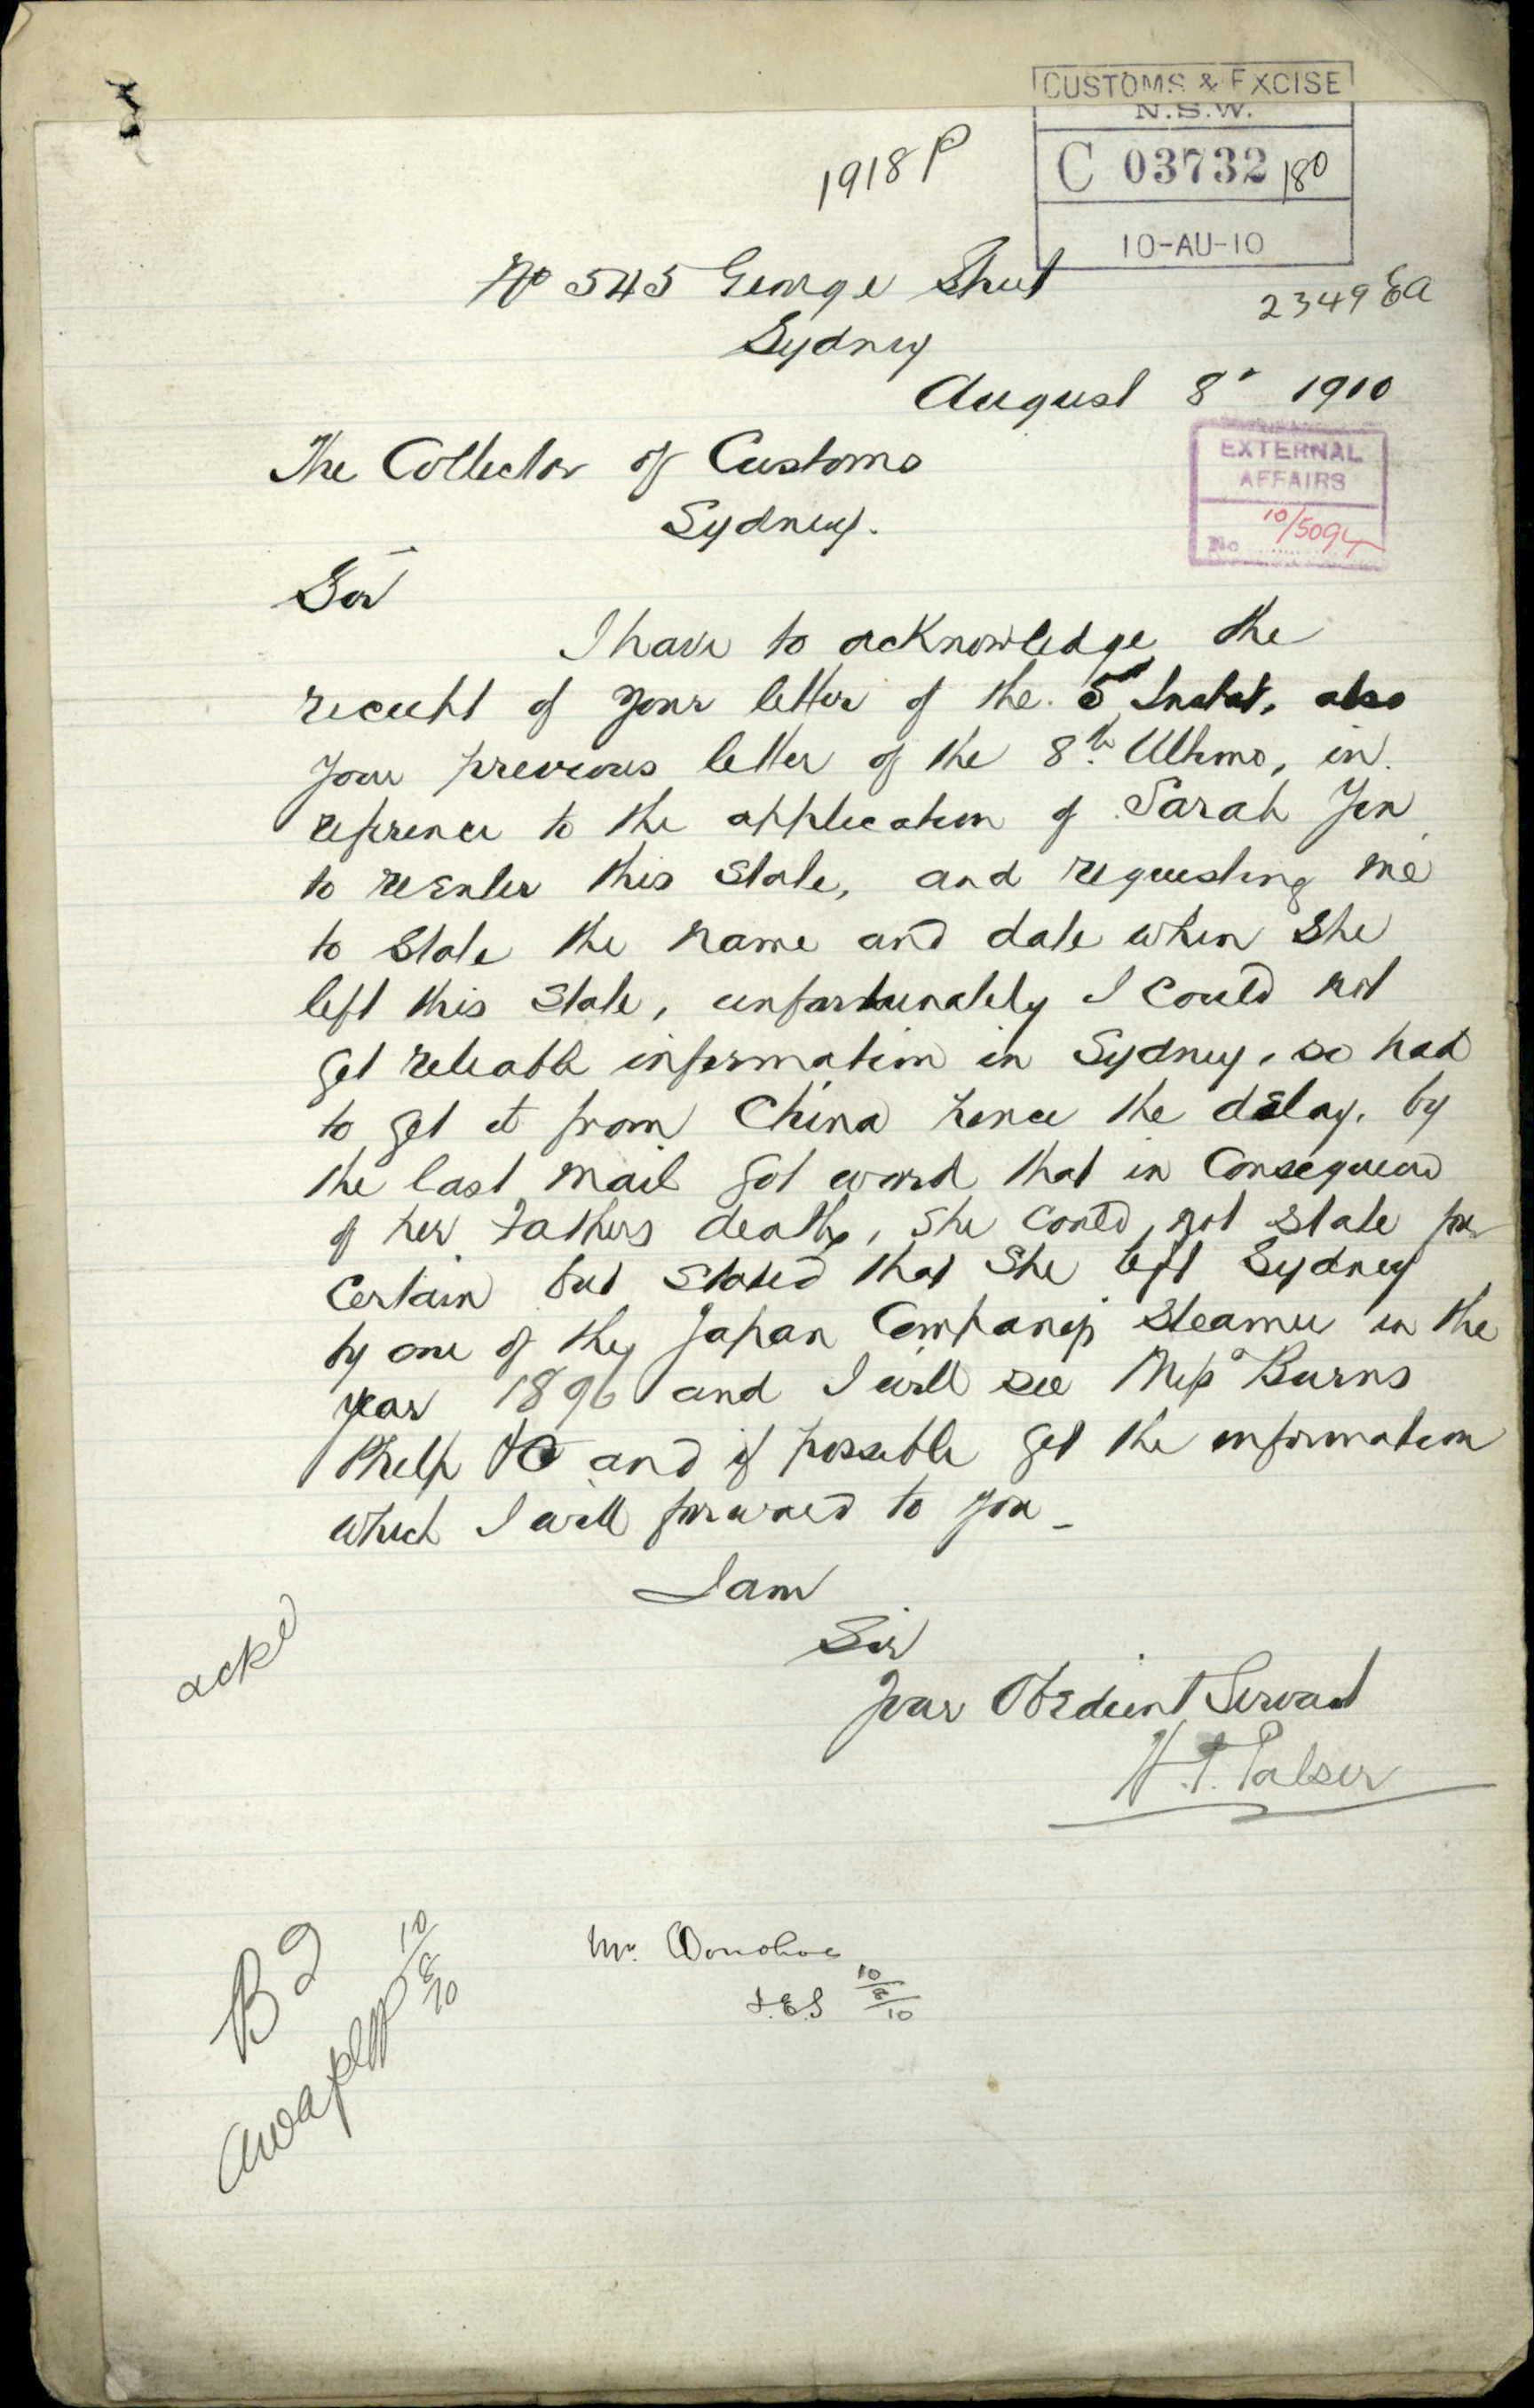 CUSTOMS & EXCISE
N.S.W.
C 03732
10-AU-10
1918 P
2349 EA
No 545 George Street
Sydney
August 8th 1910
The Collector of Customs
Sydney.
EXTERNAL
AFFAIRS
No 10/5094
Sir
I have to acknowledge the
receipt of your letter of the 5th Instat, also
your previous letter of the 8th Ultimo, in
reference to the application of Sarah Yen
to reenter this State, and requesting me
to state the name and date when she
left this State, unfortunately I could not
get reliable information in Sydney, so had
to get it from China hence the delay, by
the last mail got word that in Consequence
of her Fathers death, she could not state for
Certain but stated that she left Sydney
by one of the Japan Company's steamer in the
year 1896 and I will see Messrs Burns
Philp & Co and if possible get the information
which I will forward to you -
I am
Sir
Your Obedient Servant
H. T. Palser
ackd
B 2
10/8/10
Mr. Donohoe
10/8/10